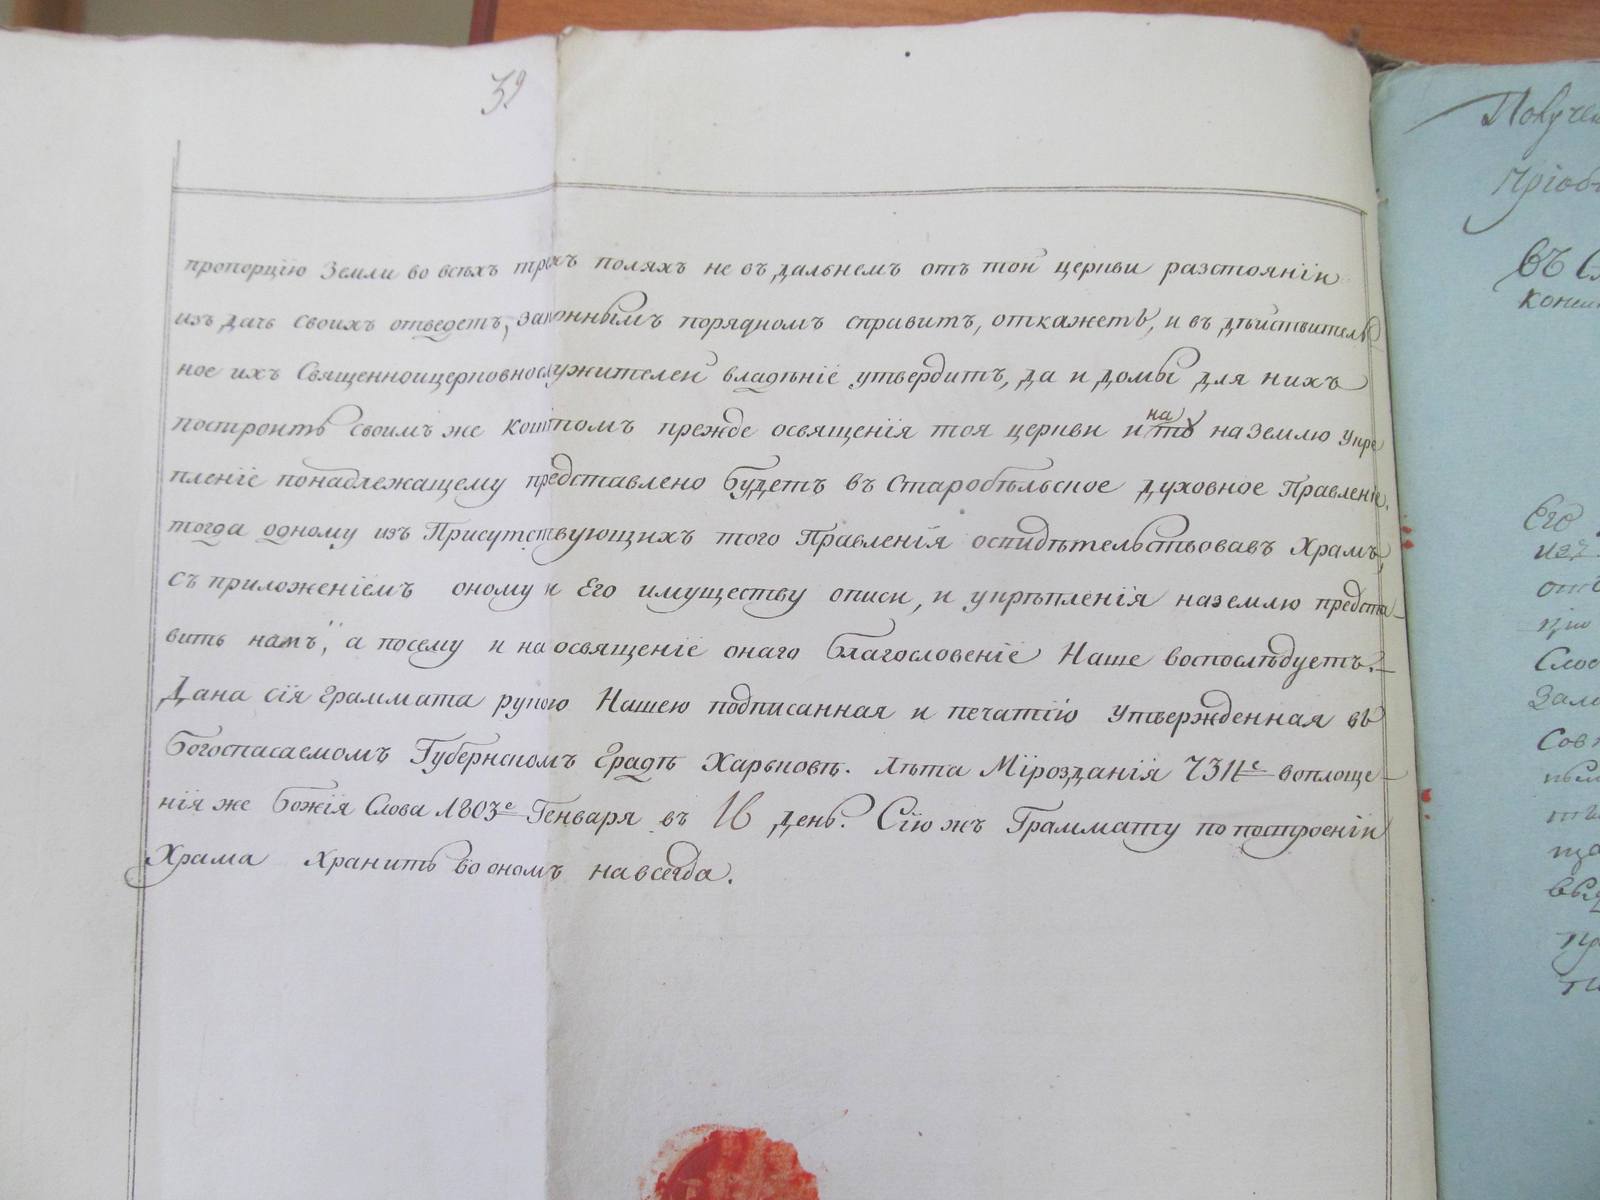 39
пропорцію Земли во всѣхъ трехъ поляхъ не въ дальнемъ отъ той церкви разстояніи
изъ дачь своихъ отведетъ, законнымъ порядкомъ справитъ, откажетъ, и въ дѣйствитель-
ное ихъ Священноицерковнослужителей владѣніе утвердитъ, да и домы для нихъ
построитъ своимъ же коштомъ прежде освященія тоя церкви и на то на Землю укре
пленіе понадлежащему представлено будетъ въ Старобѣльское духовное Правленіе.
тогда одному изъ Присутствующихъ того Правленія освидѣтельствовавъ Храмъ,
съ приложеніемъ оному и Его имуществу описи, и укрѣпленія наземлю предста-
вить намъ, а посему и на освященіе онаго благословеніе Наше воспослѣдуетъ.
Дана сія граммата рукою Нашею подписанная и печатію утвержденная въ
Богоспасаемомъ Губернскомъ Градѣ Харьковѣ. Лѣта Мірозданія 7311е воплоще-
нія же Божія Слова 1803е Генваря въ 16 день. Сію жъ Граммату по построеніи
Храма хранить во ономъ навсегда.
въ
Его